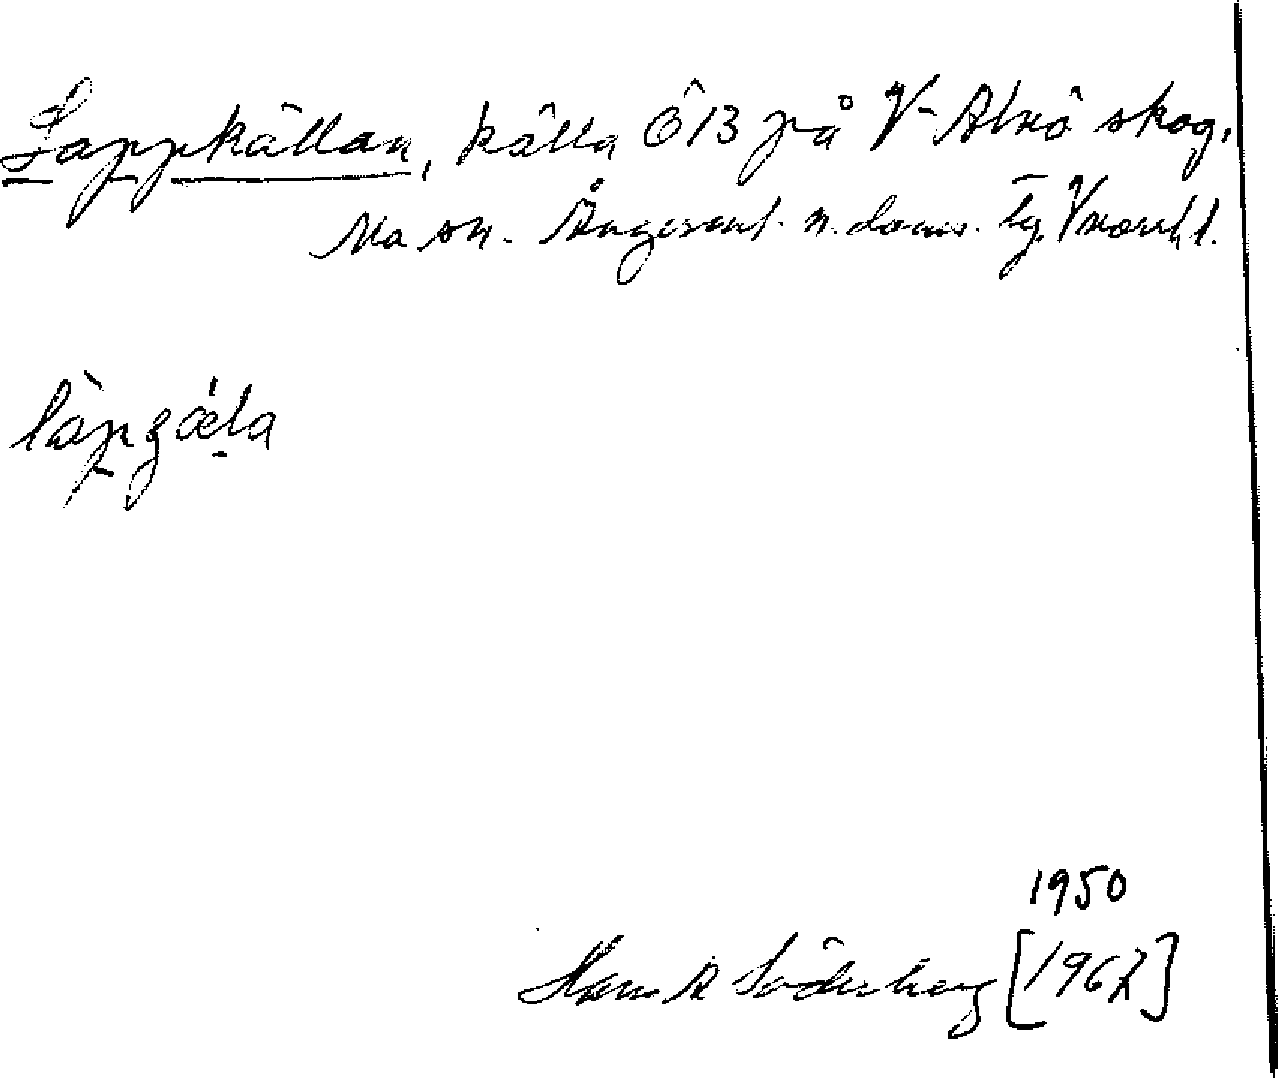 Lappkällan, källa Ö 13 på V-Alnö skog,
Alnö sn. Ångerml. n. doms. lg. Vnorrl l.
làpgæ̀la
1950
Hans A Söderberg [1962]